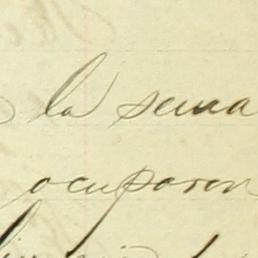 la sema
ocuparon